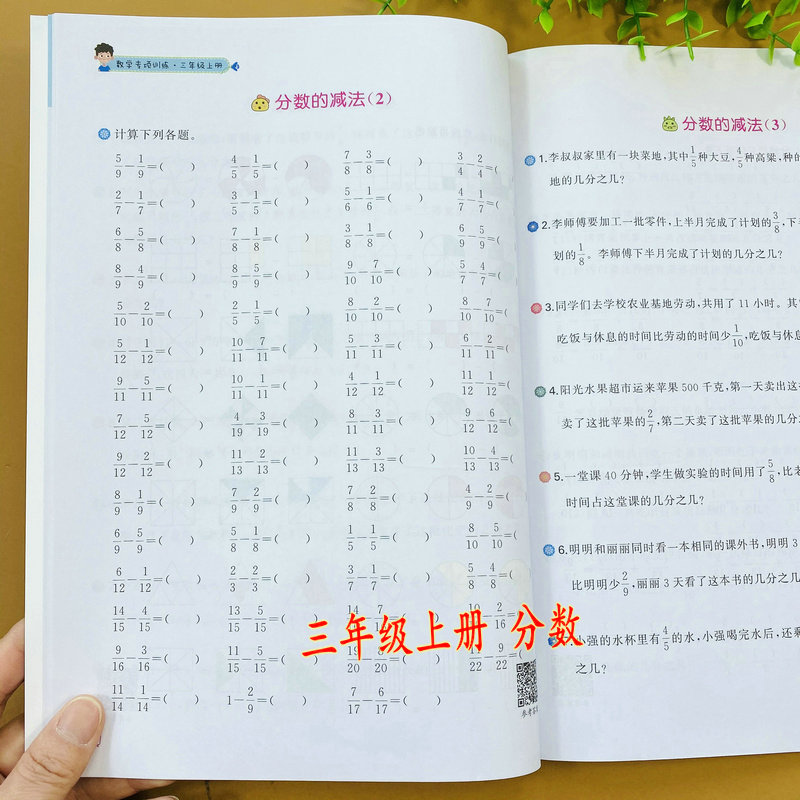 数学专项训练·三年级上册
分数的减法(2)
计算下列各题。
5/9-1/9=( ) 4/5-1/5=( ) 7/8-3/8=( ) 3/4-2/4=(
2/7-1/7=( ) 3/5-1/5=( ) 5/6-1/6=( ) 4/7-1/7=(
6/8-5/8=( ) 7/9-5/9=( ) 3/8-1/8=( ) 6/9-5/9=(
8/9-4/9=( ) 8/9-5/9=( ) 9/10-7/10=( ) 5/7-4/7=(
5/10-2/10=( ) 2/5-1/5=( ) 8/10-2/10=( ) 8/10-7/10=(
5/12-1/12=( ) 10/11-7/11=( ) 5/11-3/11=( ) 6/11-2/11=(
9/11-5/11=( ) 10/11-1/11=( ) 4/12-1/12=( ) 11/12-1/12=(
7/12-5/12=( ) 4/19-3/19=( ) 8/11-3/11=( ) 9/12-6/12=(
9/12-2/12=( ) 11/13-2/13=( ) 11/13-3/13=( ) 10/13-4/13=(
8/9-1/9=( ) 7/9-2/9=( ) 7/8-2/8=( ) 4/9-2/9=(
6/9-5/9=( ) 5/8-1/8=( ) 1/5-1/5=( ) 8/10-5/10=(
6/12-1/12=( ) 2/6-2/6=( ) 3/7-1/7=( ) 5/8-4/8=(
14/15-4/15=( ) 13/15-5/15=( ) 14 7
9/16-3/16=( ) 11/15-5/15=( ) 19/20-8/20=( ) 11/22-9/22=(
11/14-1/14=( ) 1-2/9=( ) 7/17-6/17=( )
分数的减法(3)
1.李叔叔家里有一块菜地,其中1/5种大豆,4/5种高粱,种的
地的几分之几?
2.李师傅要加工一批零件,上半月完成了计划的3/8,下
划的1/8。李师傅下半月完成了计划的几分之几?
3.同学们去学校农业基地劳动,共用了11小时。其
吃饭与休息的时间比劳动的时间少1/10,吃饭与休息
4.阳光水果超市运来苹果500千克,第一天卖出这
卖了这批苹果的2/7,第二天卖了这批苹果的几分
5.一堂课40分钟,学生做实验的时间用了5/8,比老
时间占这堂课的几分之几?
6.明明和丽丽同时看一本相同的课外书,明明3
比明明少2/9,丽丽3天看了这本书的几分之
小强的水杯里有4/5的水,小强喝完水后,还剩
之几?
三年级上册 分数